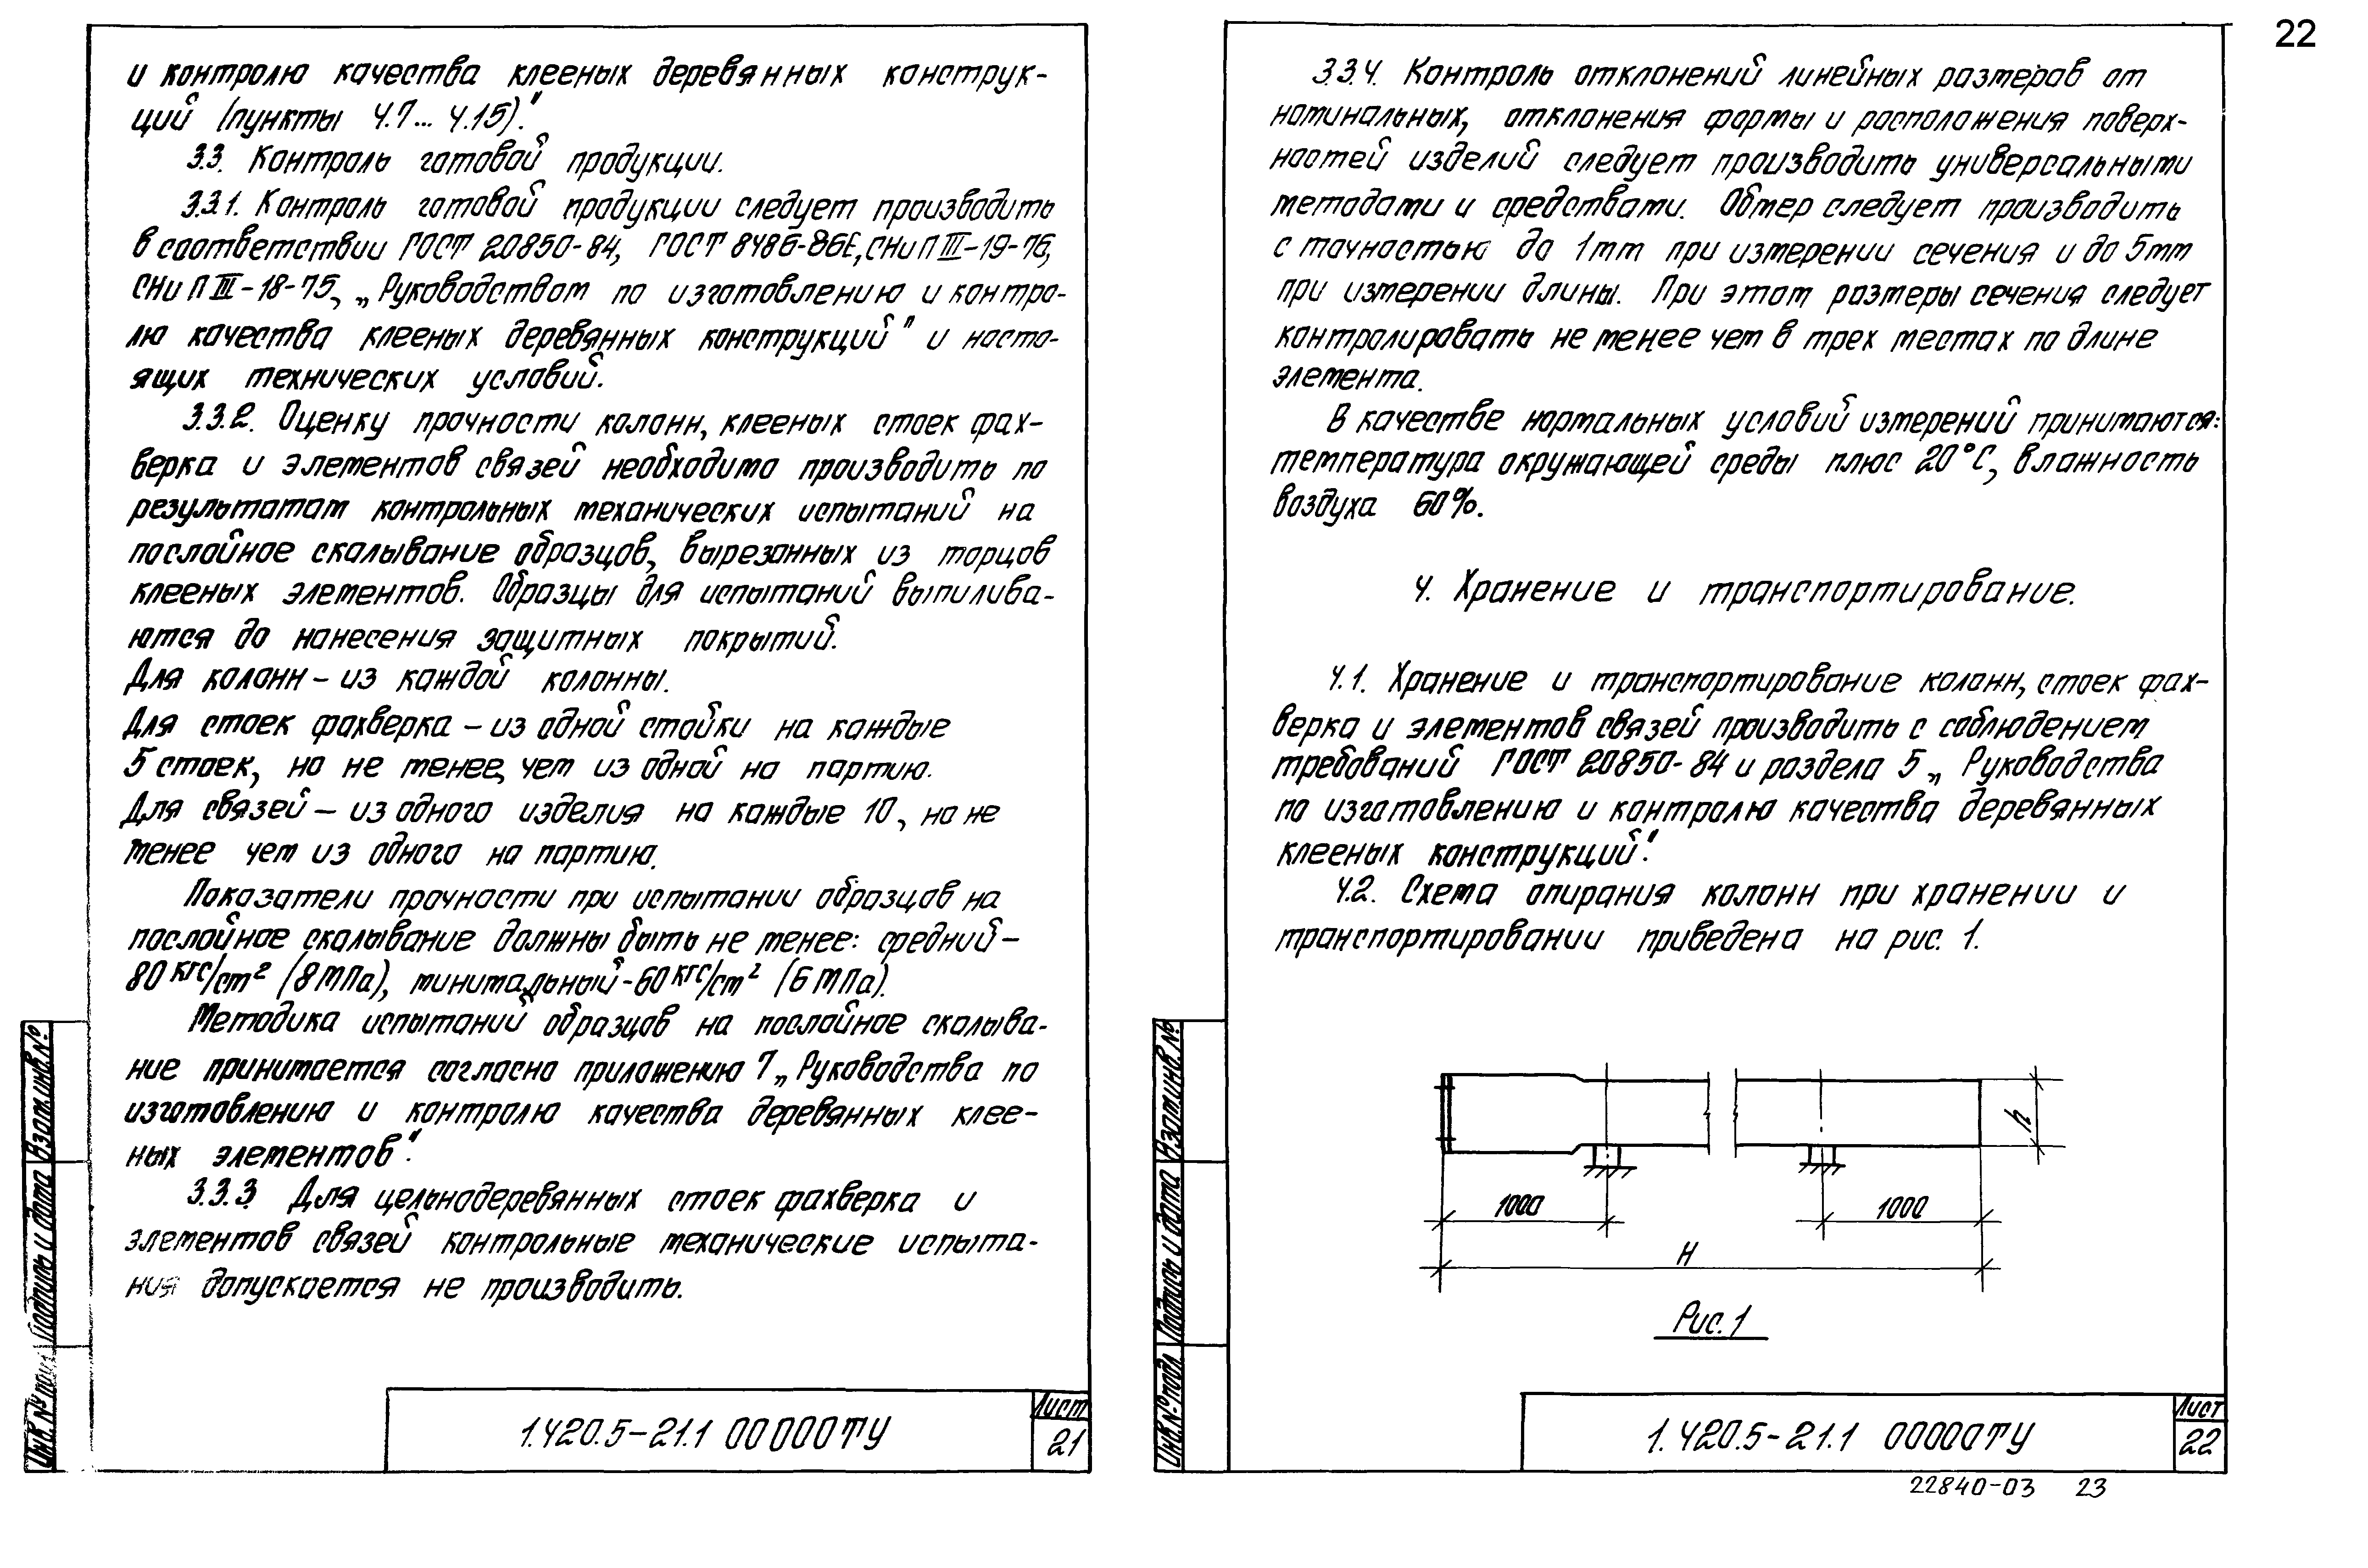 22
и контролю качества клееных деревянных конструк-
ций (пункты 4.7... 4.15)."
3.3. Контроль готовой продукции.
3.3.1. Контроль готовой продукции следует производить
в соответствии ГОСТ 20850-84, ГОСТ 8486-86Е, СНиП III-19-76,
СНиП III-18-75, „Руководством по изготовлению и контро-
лю качества клееных деревянных конструкций" и насто-
ящих технических условий.
3.3.2. Оценку прочности колонн, клееных стоек фах-
верка и элементов связей необходимо производить по
результатам контрольных механических испытаний на
послойное скалывание образцов, вырезанных из торцов
клееных элементов. Образцы для испытаний выпилива-
ются до нанесения защитных покрытий.
Для колонн - из каждой колонны.
Для стоек фахверка - из одной стойки на каждые
5 стоек, но не менее, чем из одной на партию.
Для связей - из одного изделия на каждые 10, но не
менее чем из одного на партию.
Показатели прочности при испытании образцов на
послойное скалывание должны быть не менее: средний -
80 кгс/см² (8 МПа), минимальный - 60 кгс/см² (6 МПа).
Методика испытаний образцов на послойное скалыва-
ние принимается согласно приложению 7 „Руководства по
изготовлению и контролю качества деревянных клее-
ных элементов".
3.3.3 Для цельнодеревянных стоек фахверка и
элементов связей контрольные механические испыта-
ния допускается не производить.
Взам.инв.№
Подпись и дата
Инв.№ подл
1.420.5-21.1 00000ТУ
Лист
21
3.3.4. Контроль отклонений линейных размеров от
номинальных, отклонения формы и расположения поверх-
ностей изделий следует производить универсальными
методами и средствами. Обмер следует производить
с точностью до 1мм при измерении сечения и до 5мм
при измерении длины. При этом размеры сечения следует
контролировать не менее чем в трех местах по длине
элемента.
В качестве нормальных условий измерений принимаются:
температура окружающей среды плюс 20°С, влажность
воздуха 60%.
4. Хранение и транспортирование.
4.1. Хранение и транспортирование колонн, стоек фах-
верка и элементов связей производить с соблюдением
требований ГОСТ 20850-84 и раздела 5 „Руководства
по изготовлению и контролю качества деревянных
клееных конструкций".
4.2. Схема опирания колонн при хранении и
транспортировании приведена на рис. 1.
h
1000
1000
H
Рис. 1
Взам.инв.№
Подпись и дата
Инв.№ подл
1.420.5-21.1 00000ТУ
Лист
22
22840-03 23